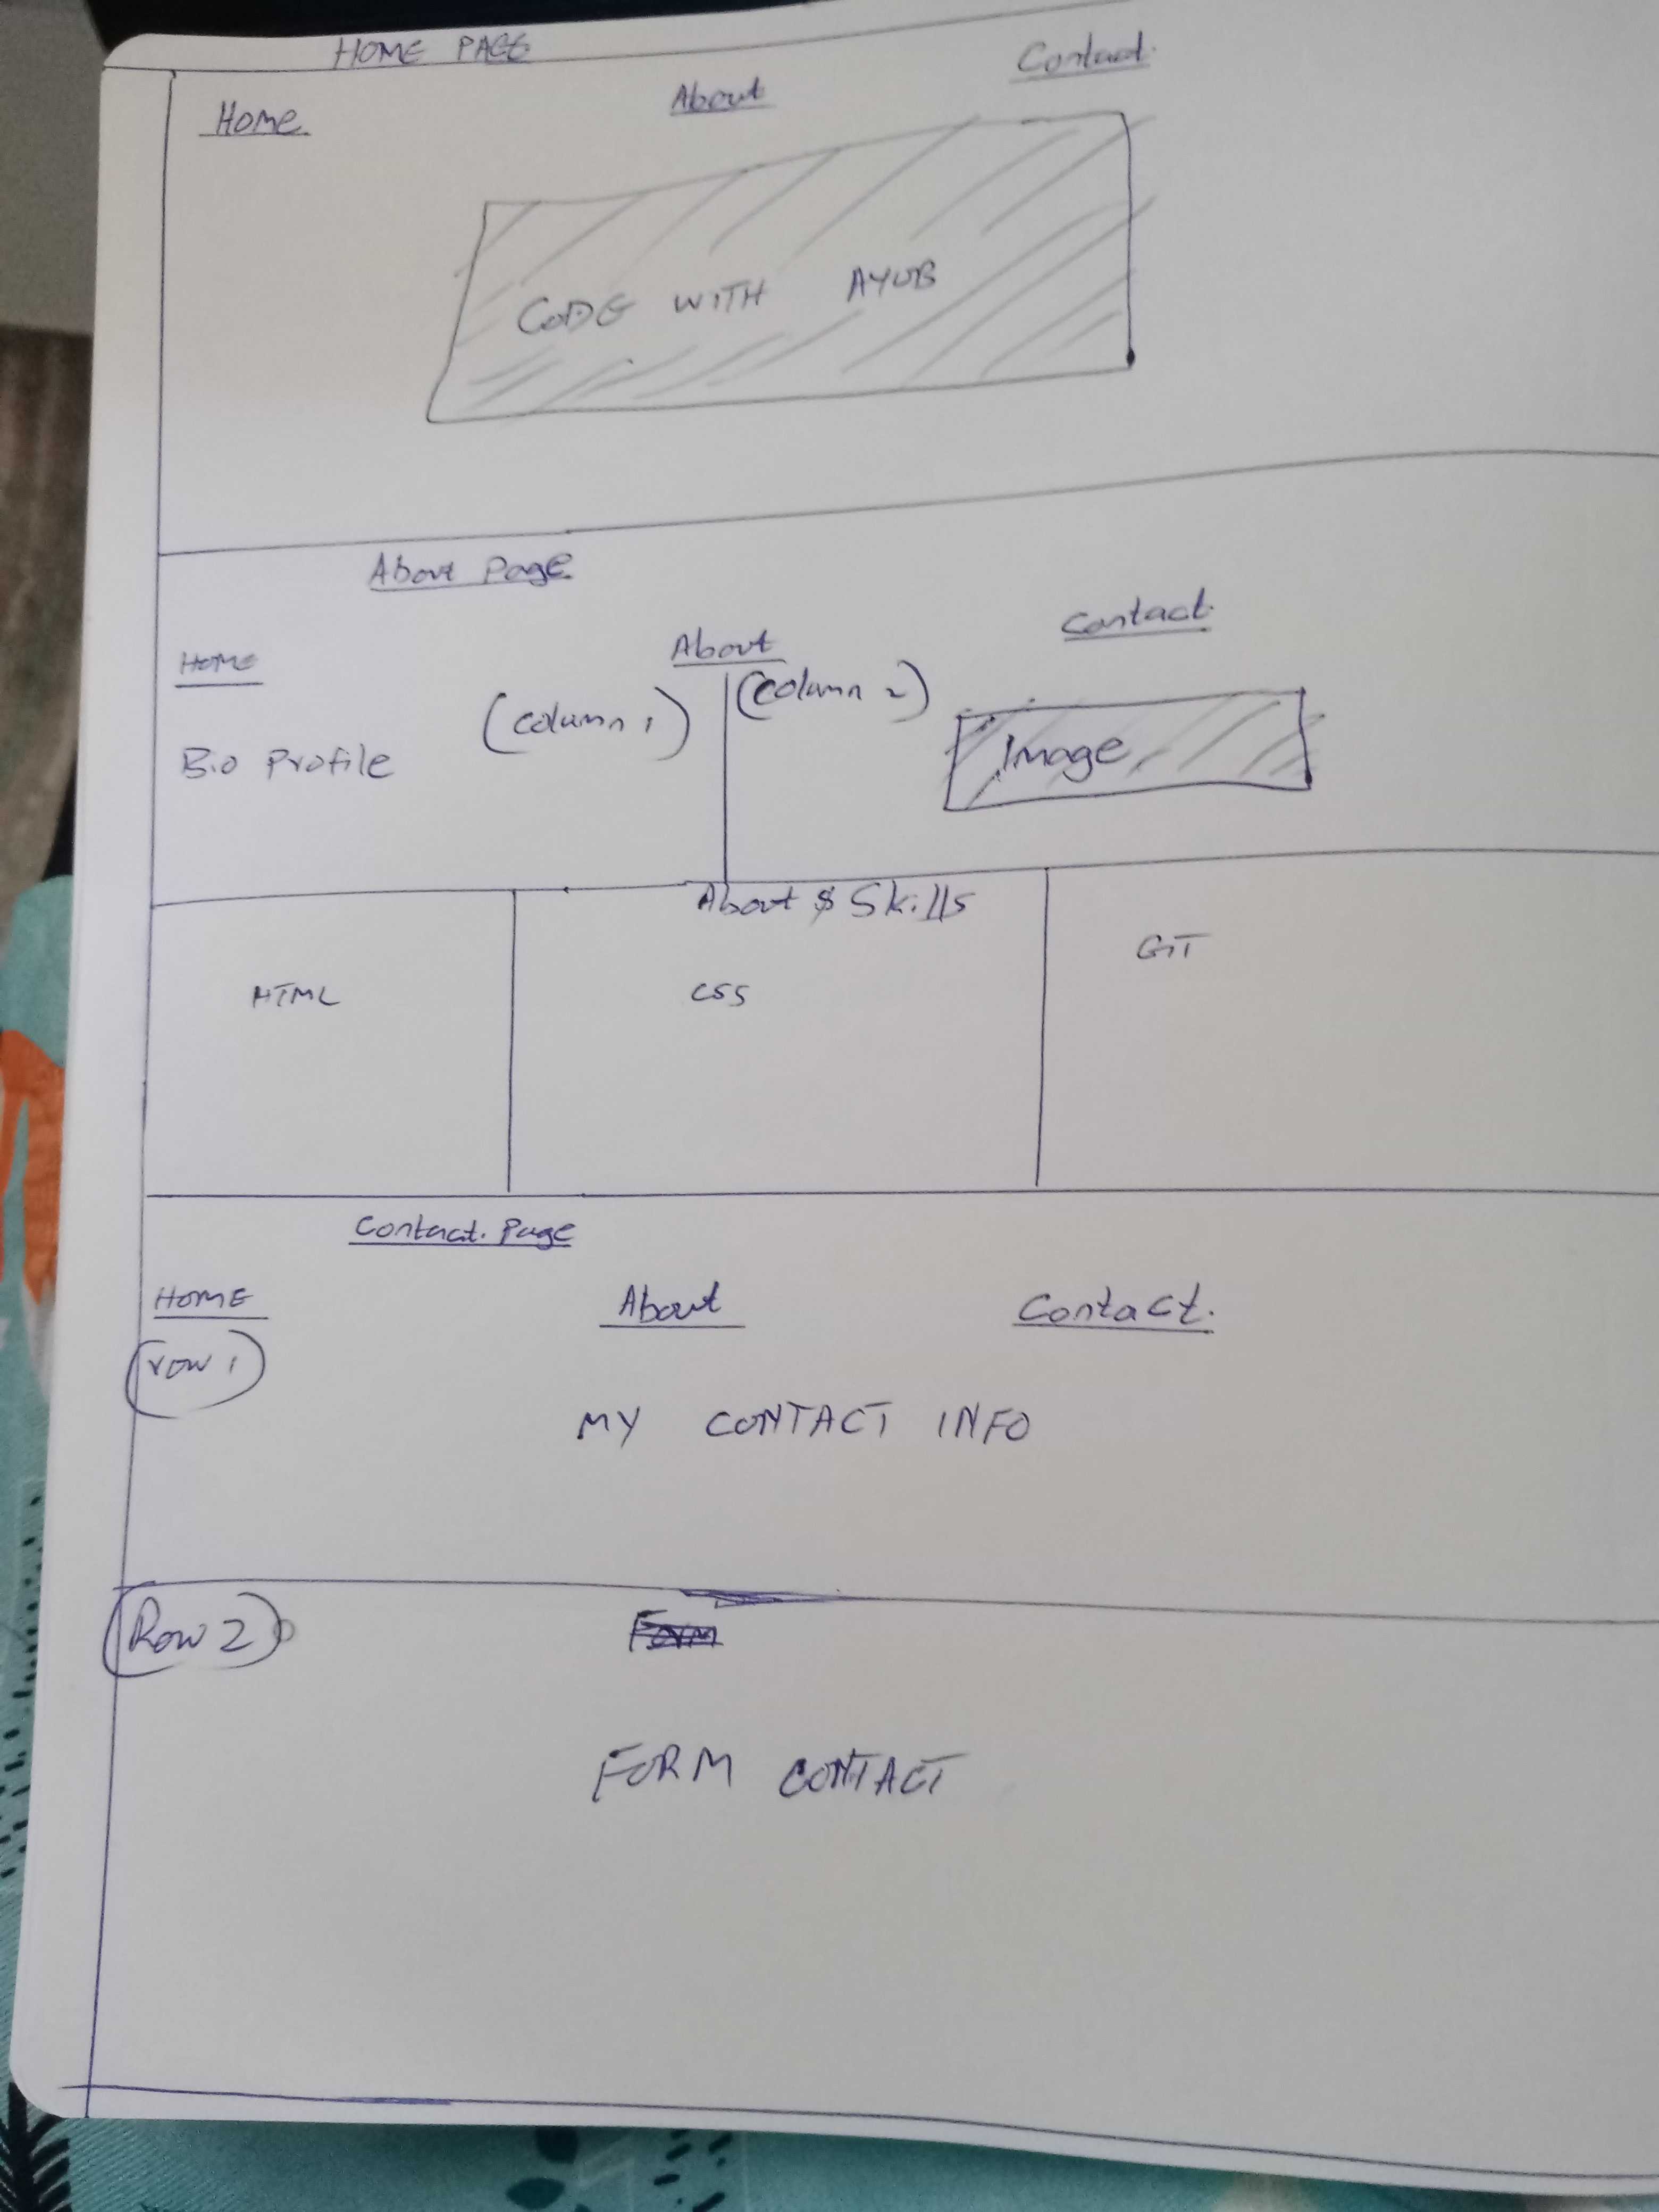 HOME PAGE
Home About Contact.
CODE WITH AYUB
About Page
HOME About Contact.
(column 1) (column 2)
Bio Profile Image
About & Skills
HTML CSS GIT
Contact. Page
HOME About Contact.
row 1
MY CONTACT INFO
Row 2
Form
FORM CONTACT